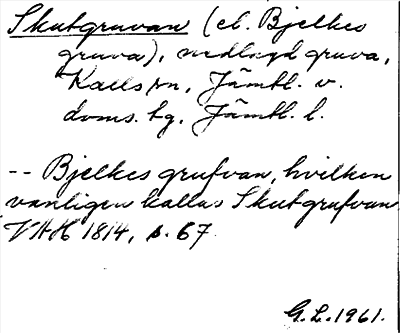 Skutgruvan (el. Bjelkes
gruva), nedlagd gruva,
Kalls sn, Jämtl. v.
doms. tg, Jämtl. l.
-- Bjelkes grufvan, hvilken
vanligen kallas Skutgrufvan
VAH 1814, s. 67.
G.L. 1961.